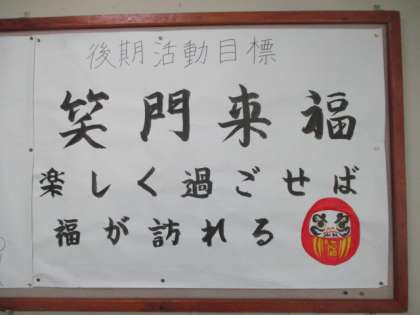 後期活動目標
笑門来福
楽しく過ごせば
福が訪れる
福